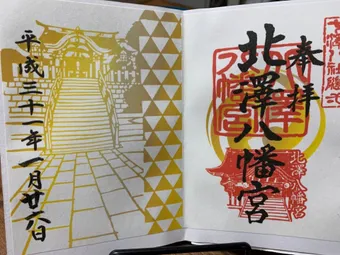 奉拝
北澤八幡宮
北澤八幡宮
平成三十一年一月廿六日